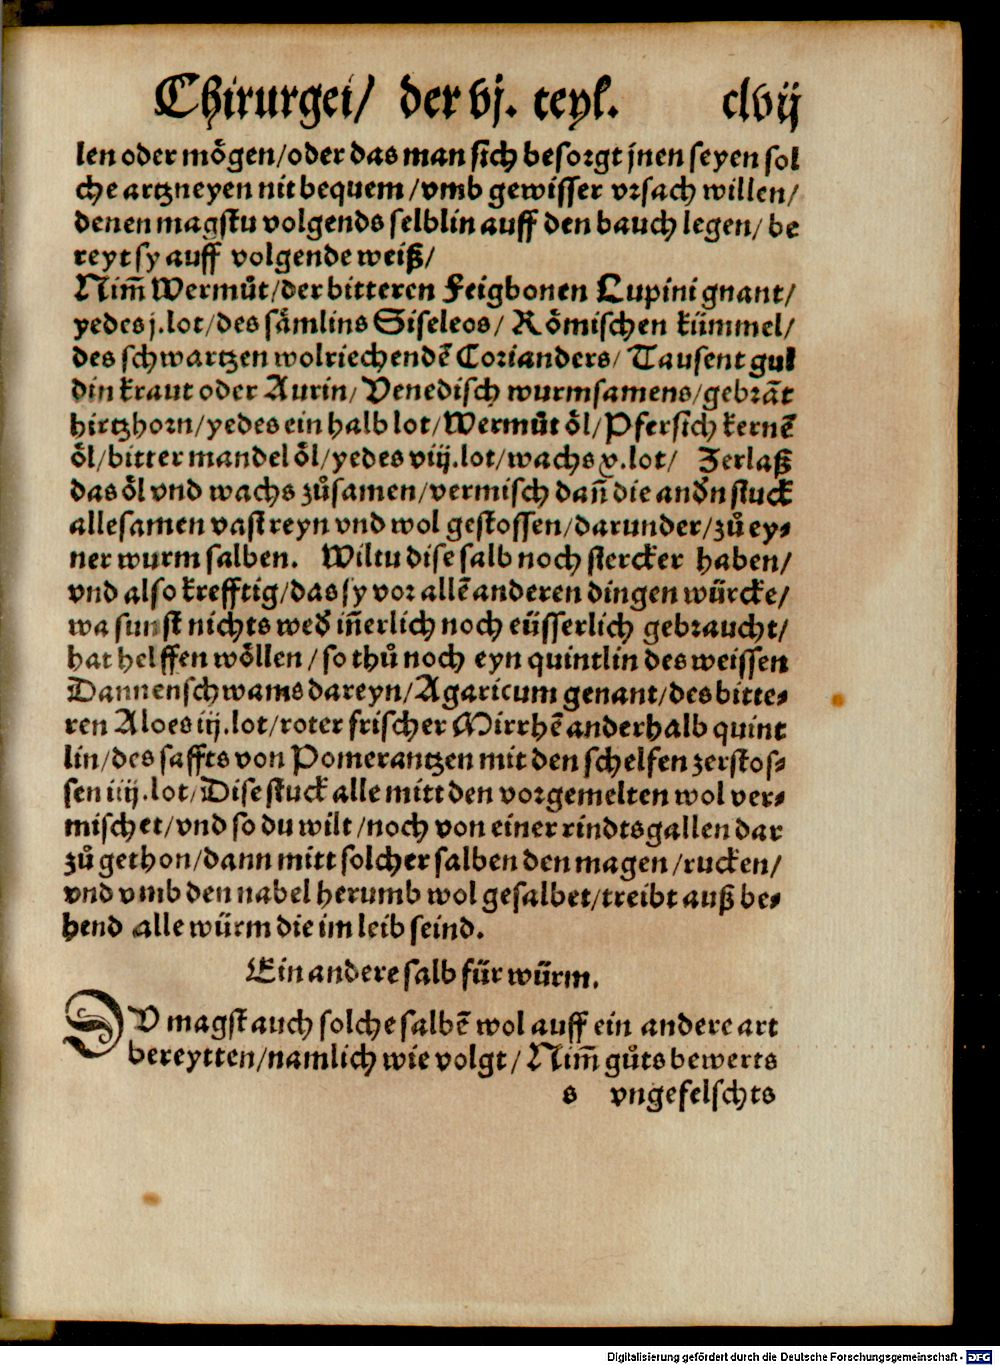 Chirurgei/ der vj. teyl. clvij
len oder mögen/oder das man sich besorgt jnen seyen sol
che artzneyen nit bequem/vmb gewisser vrsach willen/
denen magstu volgends selblin auff den bauch legen/ be
reyt sy auff volgende weiß/
Nim̄ Wermůt/der bitteren Feigbonen Lupini gnant/
yedes j.lot/des sämlins Siseleos/ Römischen kümmel/
des schwartzen wolriechendē Corianders/ Tausent gul
din kraut oder Aurin/ Venedisch wurmsamens/gebrāt
hirtzhorn/yedes ein halb lot/Wermůt öl/Pfersich kernē
öl/bitter mandel öl/yedes viij.lot/wachs v.lot/ Zerlaß
das öl vnd wachs zůsamen/vermisch dan̄ die andn̄ stuck
allesamen vast reyn vnd wol gestossen/darunder/zů ey⸗
ner wurm salben. Wiltu dise salb noch stercker haben/
vnd also krefftig/das sy vor allē anderen dingen würcke/
wa sunst nichts wed̄ in̄erlich noch eüsserlich gebraucht/
hat helffen wöllen/so thů noch eyn quintlin des weissen
Dannenschwams dareyn/Agaricum genant/des bitte⸗
ren Aloes iij.lot/roter frischer Mirrhē anderhalb quint
lin/des saffts von Pomerantzen mit den schelfen zerstos⸗
sen iiij.lot/Dise stuck alle mitt den vorgemelten wol ver⸗
mischet/vnd so du wilt/noch von einer rindtsgallen dar
zů gethon/dann mitt solcher salben den magen/rucken/
vnd vmb den nabel herumb wol gesalbet/treibt auß be⸗
hend alle würm die im leib seind.
Ein andere salb für würm.
DV magst auch solche salbē wol auff ein andere art
bereytten/namlich wie volgt/ Nim̄ gůts bewerts
s vngefelschts
Digitalisierung gefördert durch die Deutsche Forschungsgemeinschaft - DFG